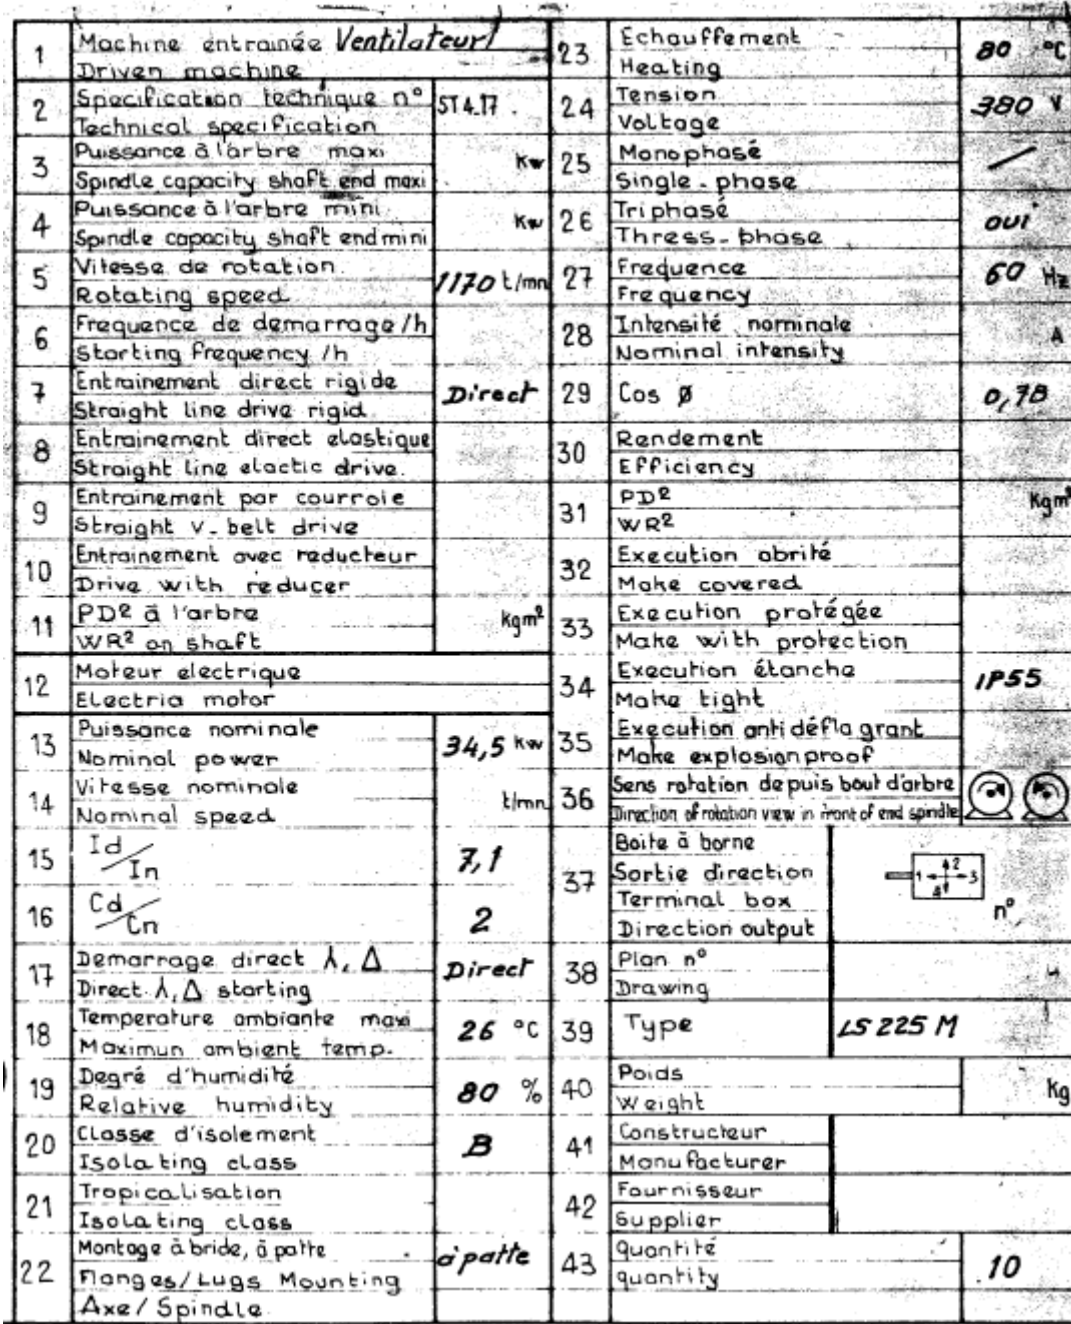 1
Machine entrainée Ventilateur
Driven machine
2
Specification technique n°
Technical specification
ST4.17
3
Puissance à l'arbre maxi
Spindle capacity shaft end maxi
Kw
4
Puissance à l'arbre mini
Spindle capacity shaft end mini
Kw
5
Vitesse de rotation
Rotating speed
1170 t/mn
6
Frequence de demarrage/h
Starting frequency /h
7
Entrainement direct rigide
Straight line drive rigid
Direct
8
Entrainement direct elastique
Straight line elactic drive.
9
Entrainement par courroie
Straight v-belt drive
10
Entrainement avec reducteur
Drive with reducer
11
PD² à l'arbre
WR² on shaft
Kgm²
12
Moteur electrique
Electria motor
13
Puissance nominale
Nominal power
34,5 Kw
14
Vitesse nominale
Nominal speed
t/mn
15
Id/In
7,1
16
Cd/Cn
2
17
Demarrage direct ⅄, Δ
Direct ⅄, Δ starting
Direct
18
Temperature ambiante maxi
Maximun ambient temp.
26 °C
19
Degré d'humidité
Relative humidity
80 %
20
Classe d'isolement
Isolating class
B
21
Tropicalisation
Isolating class
22
Montage à bride, à patte
Flanges/Lugs Mounting
Axe/Spindle
à patte
23
Echauffement
Heating
80 °C
24
Tension
Voltage
380 V
25
Monophasé
Single-phase
26
Triphasé
Thress-phase
oui
27
Frequence
Frequency
60 Hz
28
Intensité nominale
Nominal intensity
A
29
Cos Ø
0,78
30
Rendement
Efficiency
31
PD²
WR²
Kgm²
32
Execution abrité
Make covered
33
Execution protégée
Make with protection
34
Execution étanche
Make tight
IP55
35
Execution antidéflagrant
Make explosionproof
36
Sens rotation depuis bout d'arbre
Direction of rotation view in front of end spindle
37
Boite à borne
Sortie direction
Terminal box
Direction output
1 2 3
4
n°
38
Plan n°
Drawing
39
Type
LS 225 M
40
Poids
Weight
Kg
41
Constructeur
Manufacturer
42
Fournisseur
Supplier
43
quantité
quantity
10